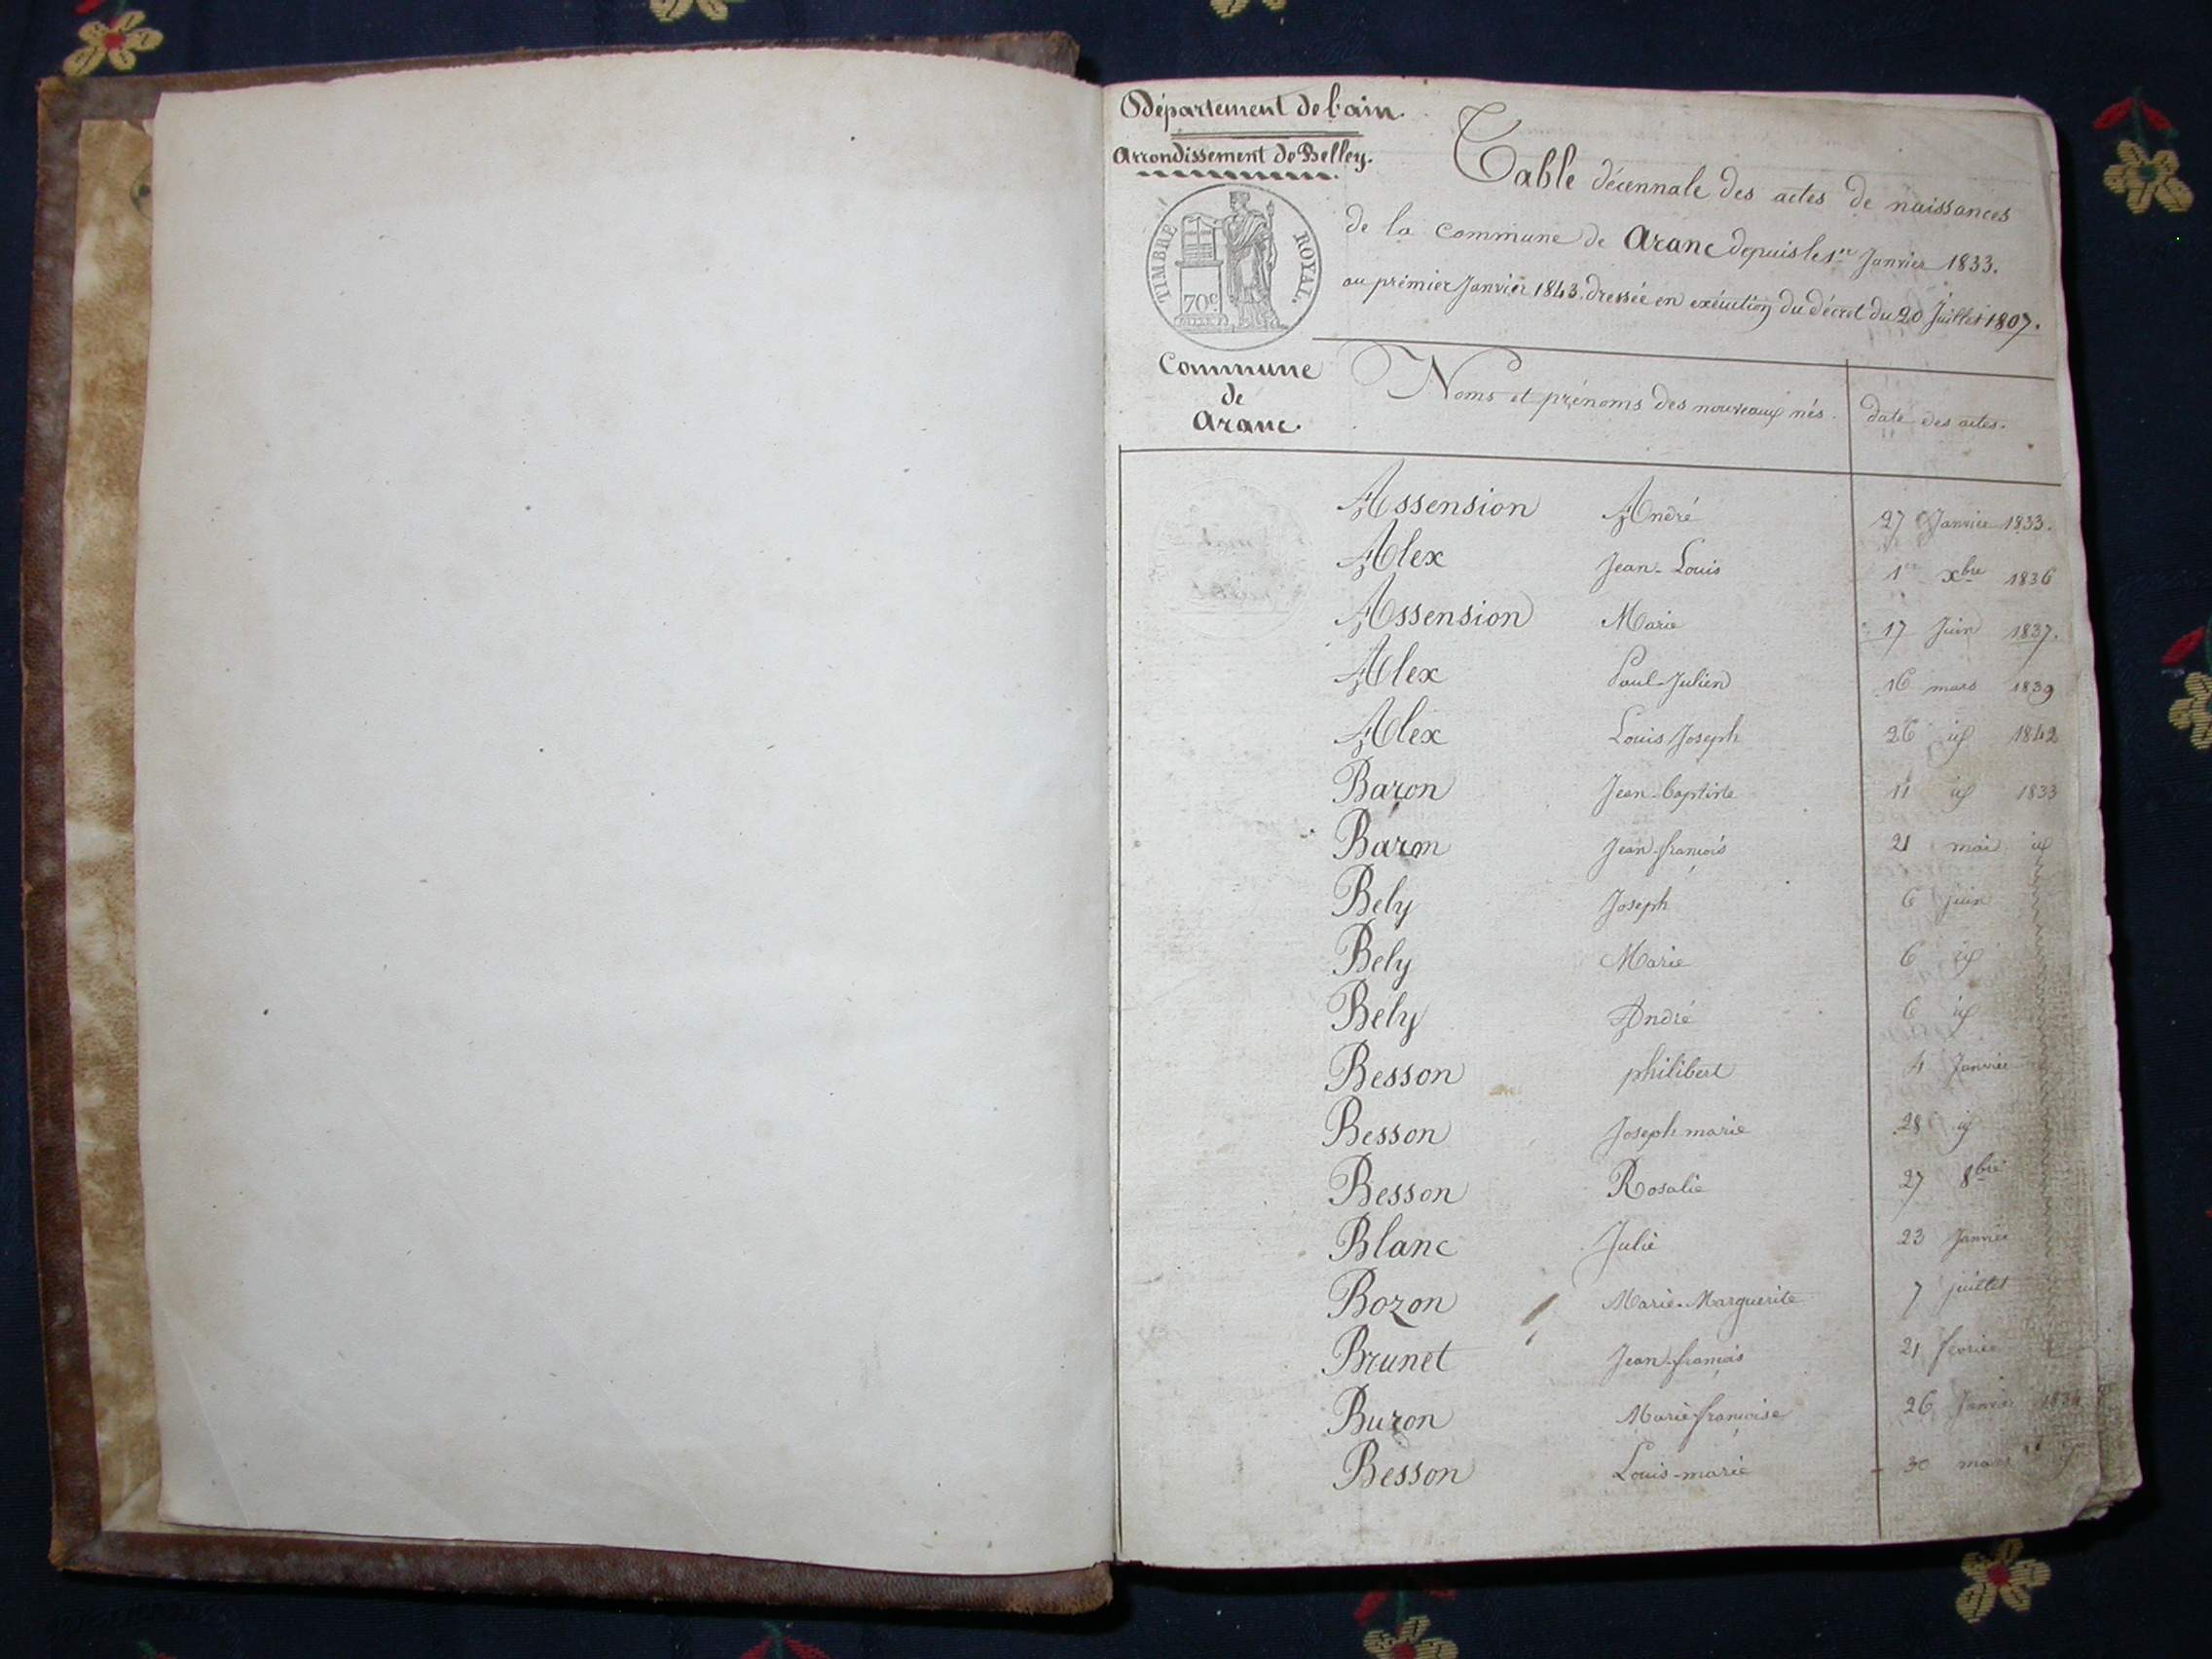 Département de l'ain.
Arrondissement de Belley.
TIMBRE ROYAL.
70c
Commune
de
Aranc.
Table décennale des actes de naissances
de la commune de Aranc depuis le 1er Janvier 1833.
au premier Janvier 1843. dressée en exécution du décret du 20 Juillet 1807.
Noms et prénoms des nouveaux nés. date des actes.
Assension André 27 Janvier 1833.
Alex Jean-Louis 1er xbre 1836
Assension Marie 17 Juin 1837.
Alex Paul-Julien 16 mars 1839
Alex Louis Joseph 26 id 1842
Baron Jean-baptiste 11 id 1833
Baron Jean-françois 21 mai id
Bely Joseph 6 juin
Bely Marie 6 id
Bely André 6 id
Besson philibert 4 Janvier
Besson Joseph marie 28 id
Besson Rosalie 27 8bre
Blanc Julie 23 Janvier
Bozon Marie-Marguerite 7 juillet
Brunet Jean-françois 21 février
Buron Marie françoise 26 Janvier 1834
Besson Louis-marie 30 mars id